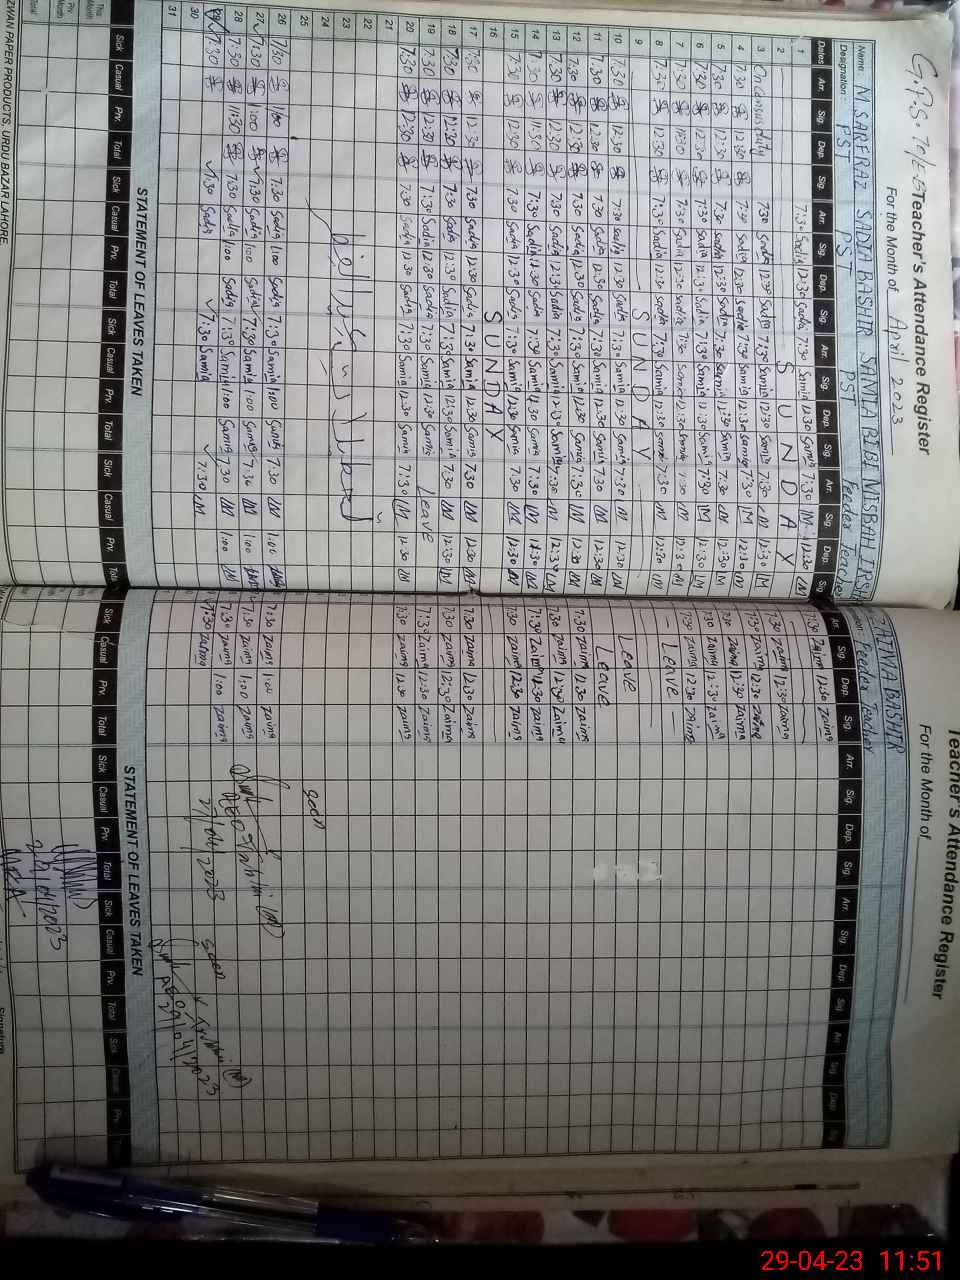 G.P.S. 70/E-B Teacher's Attendance Register
For the Month of April 2023
Name: M SARFRAZ SADIA BASHIR SAMIA BIBI MISBAH IRSH
Designation: PST PST PST Feeder Teacher
Dates Arr. Sig. Dep. Sig. Arr. Sig. Dep. Sig. Arr. Sig. Dep. Sig. Arr. Sig. Dep. Sig
1 7:30 Sadia 12:30 Sadia 7:30 Samia 12:30 Samia 7:30 12:30
2 S U N D A Y
3 On census duty 7:30 Sadia 12:30 Sadia 7:30 Samia 12:30 Samia 7:30 12:30
4 7:30 12:30 7:30 Sadia 12:30 Sadia 7:30 Samia 12:30 Samia 7:30 12:30
5 7:30 12:30 7:30 Sadia 12:30 Sadia 7:30 Samia 12:30 Samia 7:30 12:30
6 7:30 12:30 7:30 Sadia 12:30 Sadia 7:30 Samia 12:30 Samia 7:30 12:30
7 7:30 11:30 7:30 Sadia 12:30 Sadia 7:30 Samia 12:30 Samia 7:30 12:30
8 7:30 12:30 7:30 Sadia 12:30 Sadia 7:30 Samia 12:30 Samia 7:30 12:30
9 S U N D A Y
10 7:30 12:30 7:30 Sadia 12:30 Sadia 7:30 Samia 12:30 Samia 7:30 12:30
11 7:30 12:30 7:30 Sadia 12:30 Sadia 7:30 Samia 12:30 Samia 7:30 12:30
12 7:30 12:30 7:30 Sadia 12:30 Sadia 7:30 Samia 12:30 Samia 7:30 12:30
13 7:30 12:30 7:30 Sadia 12:30 Sadia 7:30 Samia 12:30 Samia 7:30 12:30
14 7:30 11:30 7:30 Sadia 12:30 Sadia 7:30 Samia 12:30 Samia 7:30 12:30
15 7:30 12:30 7:30 Sadia 12:30 Sadia 7:30 Samia 12:30 Samia 7:30 12:30
16 S U N D A Y
17 7:30 12:30 7:30 Sadia 12:30 Sadia 7:30 Samia 12:30 Samia 7:30 12:30
18 7:30 12:30 7:30 Sadia 12:30 Sadia 7:30 Samia 12:30 Samia 7:30 12:30
19 7:30 12:30 7:30 Sadia 12:30 Sadia 7:30 Samia 12:30 Samia Leave
20 7:30 12:30 7:30 Sadia 12:30 Sadia 7:30 Samia 12:30 Samia 7:30 12:30
21
22
23
24
25
26 7:30 1:00 7:30 Sadia 1:00 Sadia 7:30 Samia 1:00 Samia 7:30 1:00
27 7:30 1:00 7:30 Sadia 1:00 Sadia 7:30 Samia 1:00 Samia 7:30 1:00
28 7:30 11:30 7:30 Sadia 1:00 Sadia 7:30 Samia 1:00 Samia 7:30 1:00
29 7:30 7:30 Sadia 7:30 Samia 7:30
30
31
STATEMENT OF LEAVES TAKEN
Sick Casual Prv. Total Sick Casual Prv. Total Sick Casual Prv. Total Sick Casual Prv. Tota
This Month
Prv Month
Total
ZWAN PAPER PRODUCTS, URDU BAZAR LAHORE.
Teacher's Attendance Register
For the Month of
ZAINA BASHIR
Feeder Teacher
Arr. Sig. Dep. Sig. Arr. Sig. Dep. Sig. Arr. Sig. Dep. Sig. Arr. Sig. Dep. Sig
7:30 Zaima 12:30 Zaima
7:30 Zaima 12:30 Zaima
7:30 Zaima 12:30 Zaima
7:30 Zaima 12:30 Zaima
7:30 Zaima 12:30 Zaima
7:30 Zaima 12:30 Zaima
Leave
Leave
Leave
7:30 Zaima 12:30 Zaima
7:30 Zaima 12:30 Zaima
7:30 Zaima 12:30 Zaima
7:30 Zaima 12:30 Zaima
7:30 Zaima 12:30 Zaima
7:30 Zaima 12:30 Zaima
7:30 Zaima 12:30 Zaima
7:30 Zaima 12:30 Zaima
seen
7:30 Zaima 1:00 Zaima
7:30 Zaima 1:00 Zaima
7:30 Zaima 1:00 Zaima
7:30 Zaima
AEO
27/04/2023
seen
AEO
29/04/2023
STATEMENT OF LEAVES TAKEN
Sick Casual Prv. Total Sick Casual Prv. Total Sick Casual Prv. Total Sick Casual Prv.
29/04/2023
MEA
Signature
29-04-23 11:51